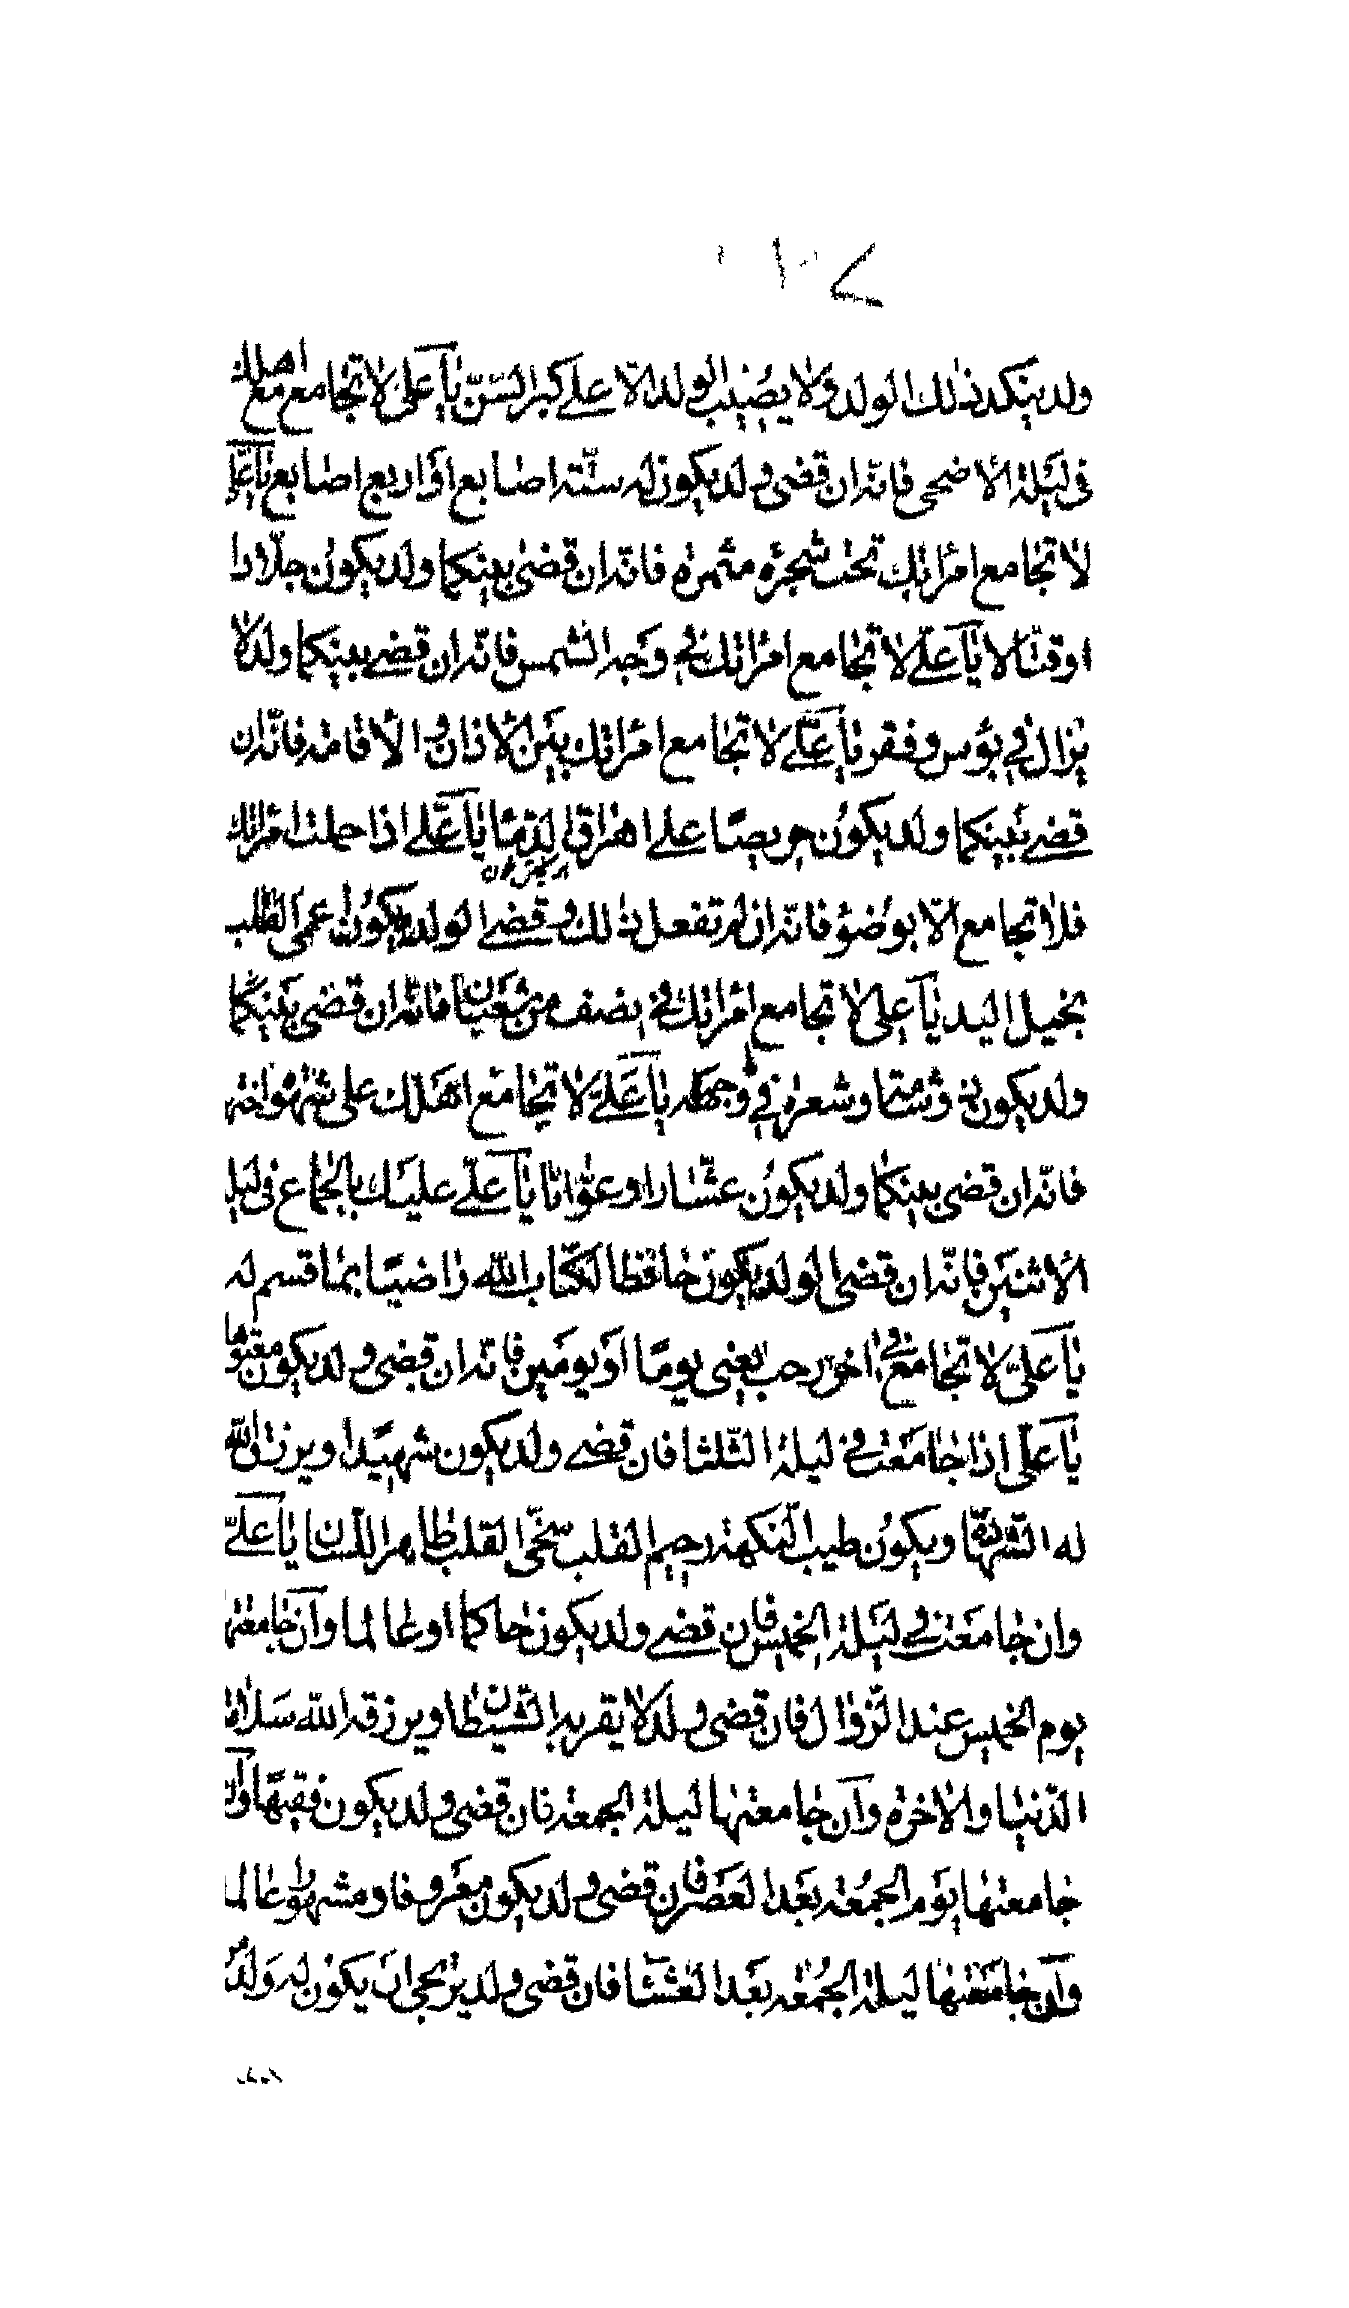 ولد ينكد ذلك الولد ولا يصيب الولد الا على كبر السن يا على لا تجامع مع اهلك
فى ليلة الاضحى فانه ان قضى ولد يكون له ستة اصابع او اربع اصابع يا على
لا تجامع امراتك تحت شجرة مثمرة فانه ان قضى بينكما ولد يكون جلادا
او قتالا يا على لا تجامع امراتك فى وجه الشمس فانه ان قضى بينكما ولد لا
يزال فى بؤس وفقر يا على لا تجامع امراتك بين الاذان والاقامة فانه ان
قضى بينكما ولد يكون حريصا على اهراق الدما يا على اذا حملت امراتك
فلا تجامع الا بوضؤ فانه ان لم تفعل ذلك وقضى الولد يكون اعمى القلب
بخيل اليد يا على لا تجامع امراتك فى نصف من شعبان فانه ان قضى بينكما
ولد يكون وشعره فى وجهه يا على لا تجامع اهلك على شهوة اخته
فانه ان قضى بينكما ولد يكون عشارا وعوانا يا على عليك بالجماع فى ليلة
الاثنين فانه ان قضى الولد يكون حافظا لكتاب الله راضيا بما قسم له
يا على لا تجامع فى اخر رجب يعنى يوما او يومين فانه ان قضى ولد يكون معتوها
يا على اذا جامعت فى ليلة الثلثا فان قضى ولد يكون شهيدا ويرزق الله
له الشهادة ويكون طيب النكهة رحيم القلب سخى القلب طاهر اللسان يا على
وان جامعت فى ليلة الخميس فان قضى ولد يكون حاكما او عالما وان جامعتها
يوم الخميس عند الزوال فان قضى ولد لا يقربه الشيطان ويرزقه الله سلامة
الدنيا والاخرة وان جامعتها ليلة الجمعة فان قضى ولد يكون فقيها وان
جامعتها يوم الجمعة بعد العصر فان قضى ولد يكون معروفا ومشهورا عالما
وان جامعتها ليلة الجمعة بعد العشا فان قضى ولد يرجى ان يكون له ولد من